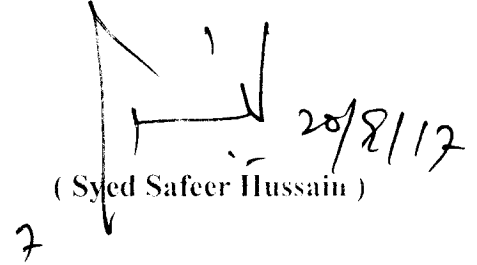 20/8/17
( Syed Safeer Hussain )
7